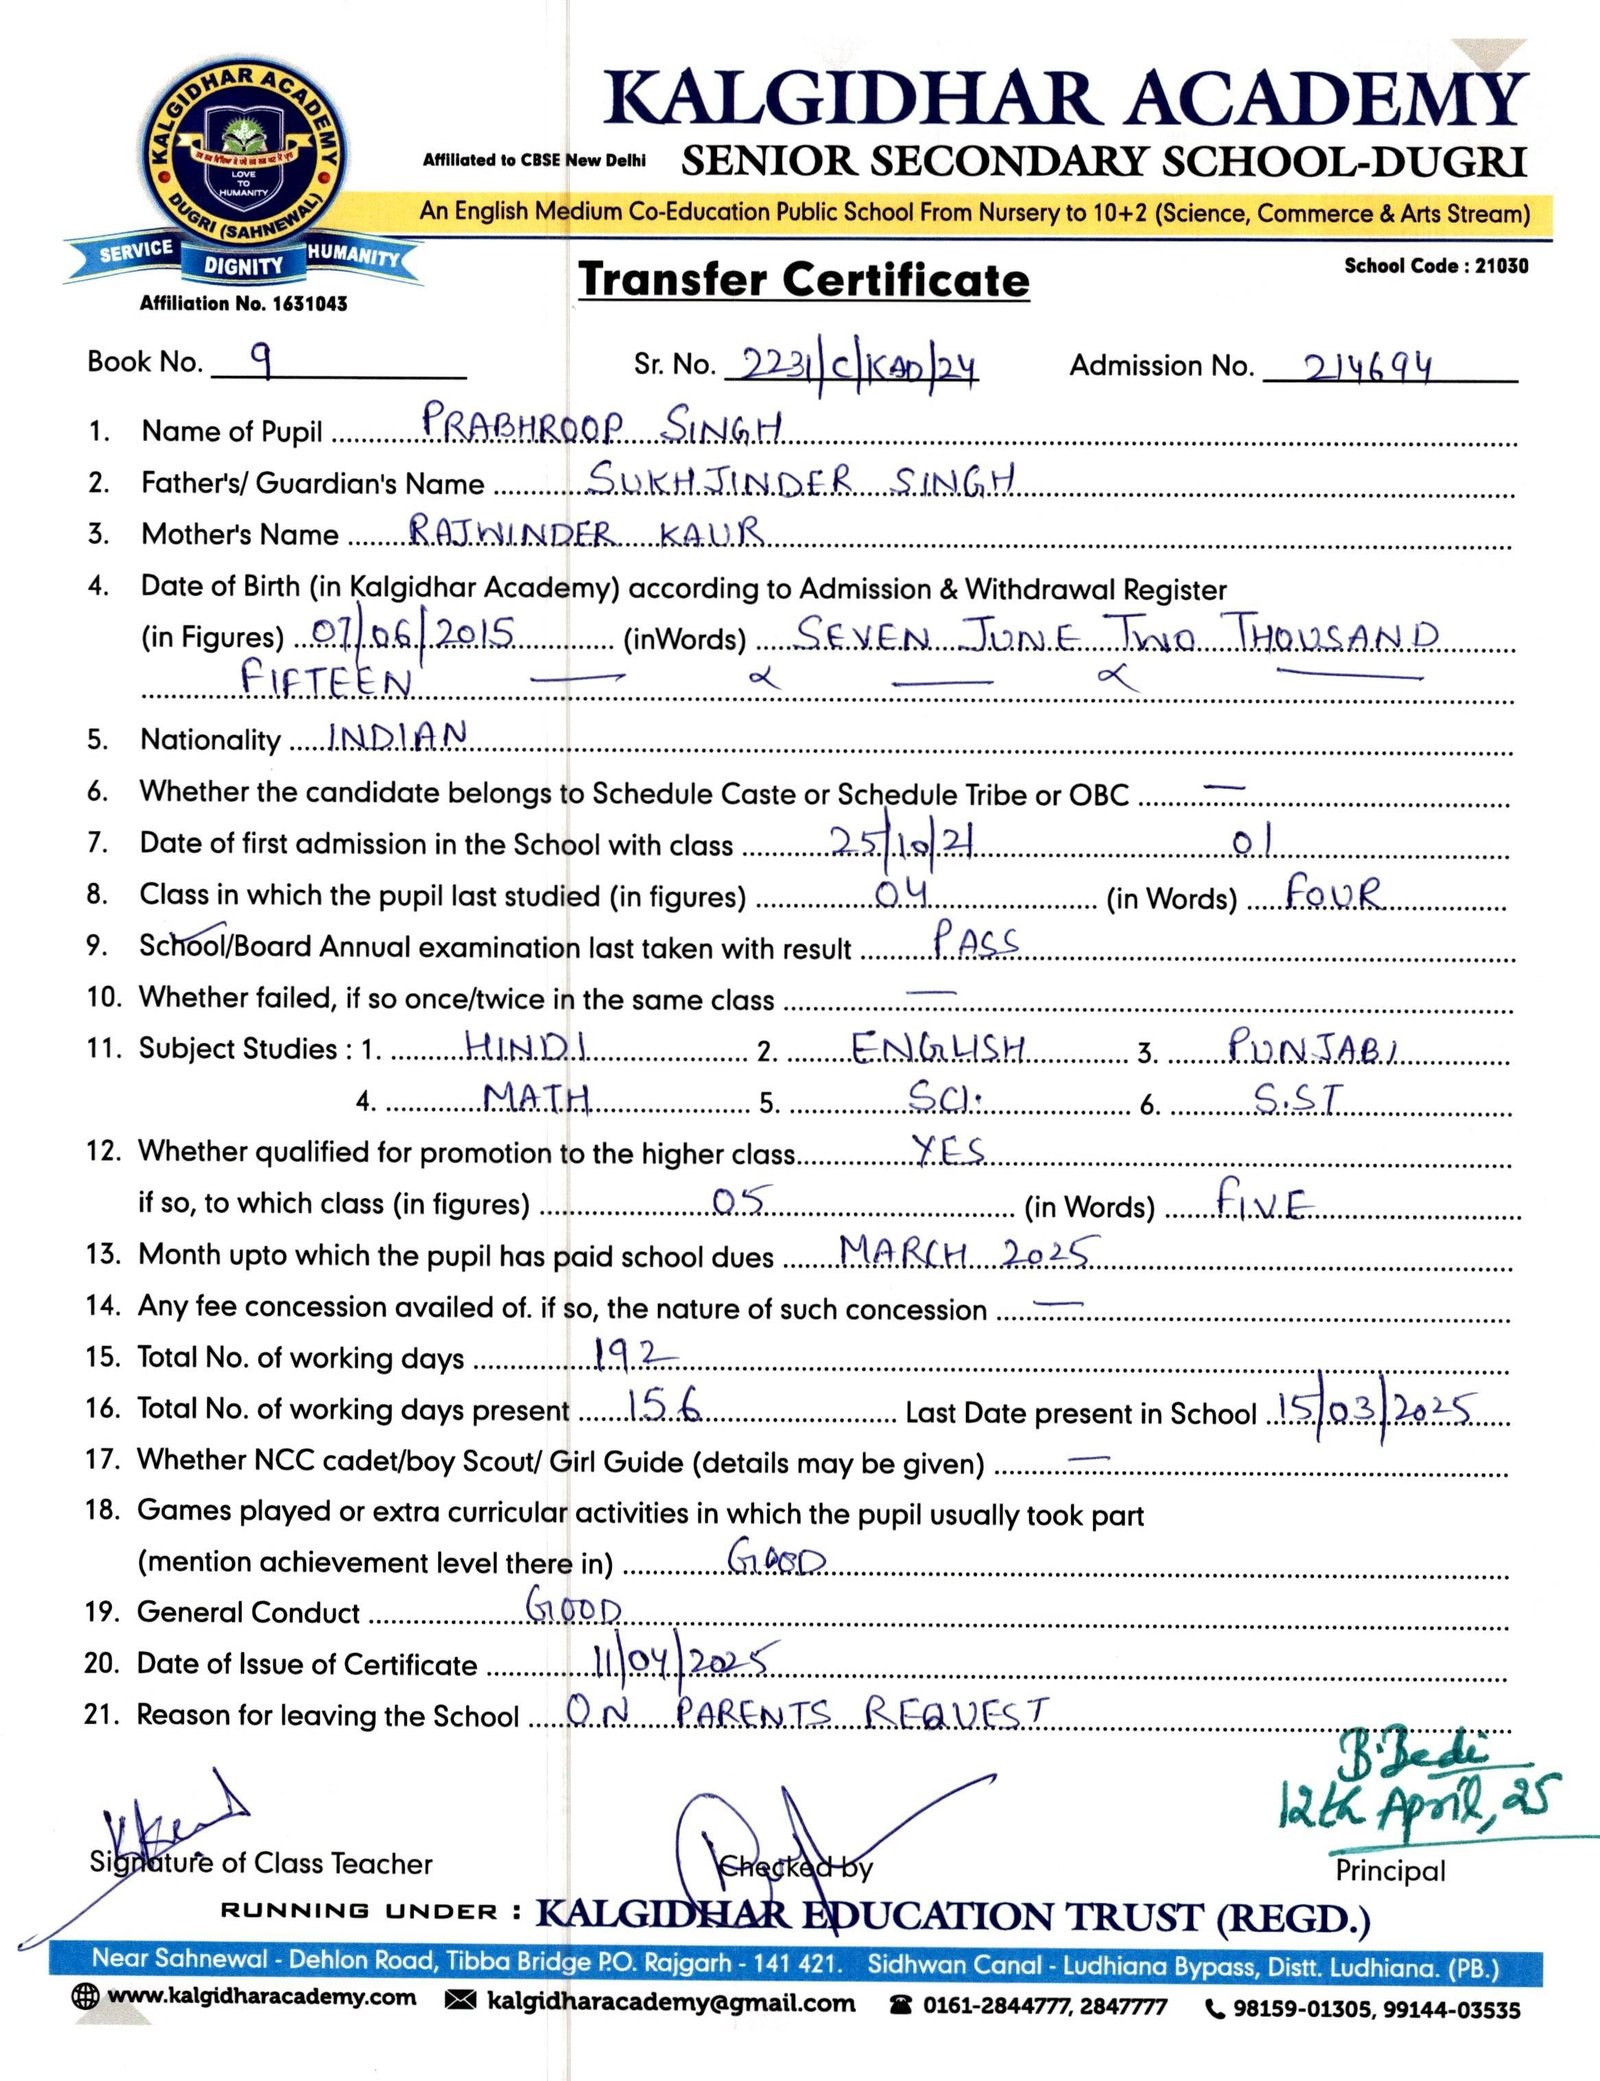 KALGIDHAR ACADEMY
DUGRI (SAHNEWAL)
LOVE
TO
HUMANITY
SERVICE DIGNITY HUMANITY
Affiliation No. 1631043
KALGIDHAR ACADEMY
Affiliated to CBSE New Delhi SENIOR SECONDARY SCHOOL-DUGRI
An English Medium Co-Education Public School From Nursery to 10+2 (Science, Commerce & Arts Stream)
Transfer Certificate
School Code : 21030
Book No. 9 Sr. No. 2231/C/KAD/24 Admission No. 214694
1. Name of Pupil PRABHROOP SINGH
2. Father's/ Guardian's Name SUKHJINDER SINGH
3. Mother's Name RAJWINDER KAUR
4. Date of Birth (in Kalgidhar Academy) according to Admission & Withdrawal Register
(in Figures) 07/06/2015 (inWords) SEVEN JUNE TWO THOUSAND
FIFTEEN
5. Nationality INDIAN
6. Whether the candidate belongs to Schedule Caste or Schedule Tribe or OBC —
7. Date of first admission in the School with class 25/10/21 01
8. Class in which the pupil last studied (in figures) 04 (in Words) FOUR
9. School/Board Annual examination last taken with result PASS
10. Whether failed, if so once/twice in the same class —
11. Subject Studies : 1. HINDI 2. ENGLISH 3. PUNJABI
4. MATH 5. SCI. 6. S.ST
12. Whether qualified for promotion to the higher class YES
if so, to which class (in figures) 05 (in Words) FIVE
13. Month upto which the pupil has paid school dues MARCH 2025
14. Any fee concession availed of. if so, the nature of such concession —
15. Total No. of working days 192
16. Total No. of working days present 156 Last Date present in School 15/03/2025
17. Whether NCC cadet/boy Scout/ Girl Guide (details may be given) —
18. Games played or extra curricular activities in which the pupil usually took part
(mention achievement level there in) GOOD
19. General Conduct GOOD
20. Date of Issue of Certificate 11/04/2025
21. Reason for leaving the School ON PARENTS REQUEST
B.Bedi
12th April, 25
Signature of Class Teacher Checked by Principal
RUNNING UNDER : KALGIDHAR EDUCATION TRUST (REGD.)
Near Sahnewal - Dehlon Road, Tibba Bridge P.O. Rajgarh - 141 421. Sidhwan Canal - Ludhiana Bypass, Distt. Ludhiana. (PB.)
www.kalgidharacademy.com kalgidharacademy@gmail.com 0161-2844777, 2847777 98159-01305, 99144-03535